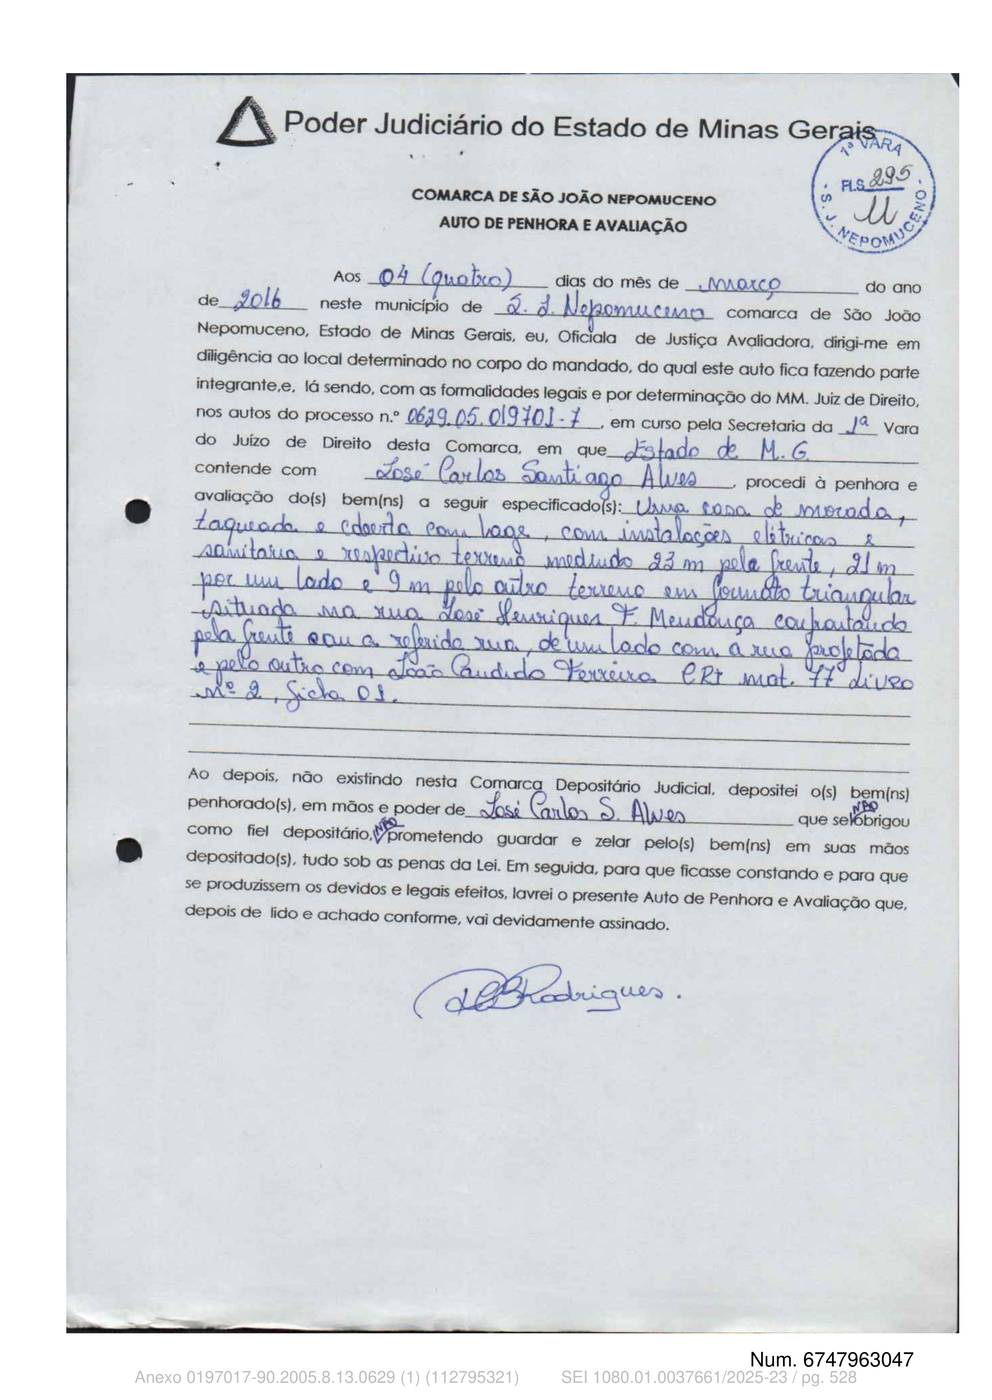 Poder Judiciário do Estado de Minas Gerais
1ª VARA
FLS 295
S. J. NEPOMUCENO
COMARCA DE SÃO JOÃO NEPOMUCENO
AUTO DE PENHORA E AVALIAÇÃO
Aos 04 (quatro) dias do mês de março do ano
de 2016 neste município de S. J. Nepomuceno comarca de São João
Nepomuceno, Estado de Minas Gerais, eu, Oficiala de Justiça Avaliadora, dirigi-me em
diligência ao local determinado no corpo do mandado, do qual este auto fica fazendo parte
integrante,e, lá sendo, com as formalidades legais e por determinação do MM. Juiz de Direito,
nos autos do processo n.º 0629.05.019701-7, em curso pela Secretaria da 1ª Vara
do Juízo de Direito desta Comarca, em que Estado de M. G.
contende com José Carlos Santiago Alves, procedi à penhora e
avaliação do(s) bem(ns) a seguir especificado(s): Uma casa de morada,
taqueada e coberta com lage, com instalações elétricas e
sanitaria e respectivo terreno medindo 23 m pela frente, 21 m
por um lado e 9 m pelo outro terreno em formato triangular
situada na rua José Henriques F. Mendonça confrontando
pela frente com a referida rua, de um lado com a rua projetada
e pelo outro com João Candido Ferreira CRI mat. 77 livro
Nº 2, ficha 01.
Ao depois, não existindo nesta Comarca Depositário Judicial, depositei o(s) bem(ns)
penhorado(s), em mãos e poder de José Carlos S. Alves que se NÃO obrigou
como fiel depositário, NÃO prometendo guardar e zelar pelo(s) bem(ns) em suas mãos
depositado(s), tudo sob as penas da Lei. Em seguida, para que ficasse constando e para que
se produzissem os devidos e legais efeitos, lavrei o presente Auto de Penhora e Avaliação que,
depois de lido e achado conforme, vai devidamente assinado.
Rodrigues.
Num. 6747963047
Anexo 0197017-90.2005.8.13.0629 (1) (112795321) SEI 1080.01.0037661/2025-23 / pg. 528